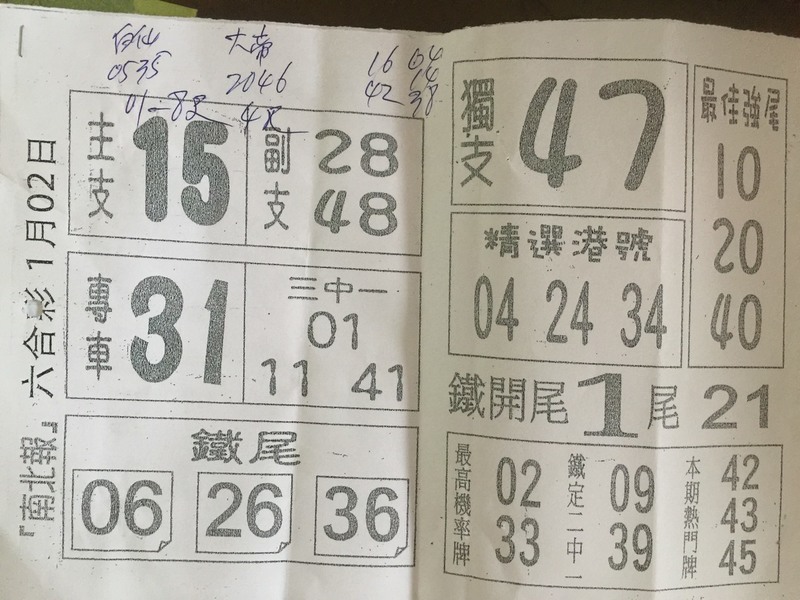 白仙 大帝
0535 2046 16 04
42 14
38
『南北報』 六合彩 1月02日
主支 15
副支 28 48
專車 31
三中一
01
11 41
鐵尾
06 26 36
獨支 47
最佳強尾
10
20
40
精選港號
04 24 34
鐵開尾 1 尾 21
最高機率牌 02 33
鐵定二中一 09 39
本期熱門牌 42 43 45